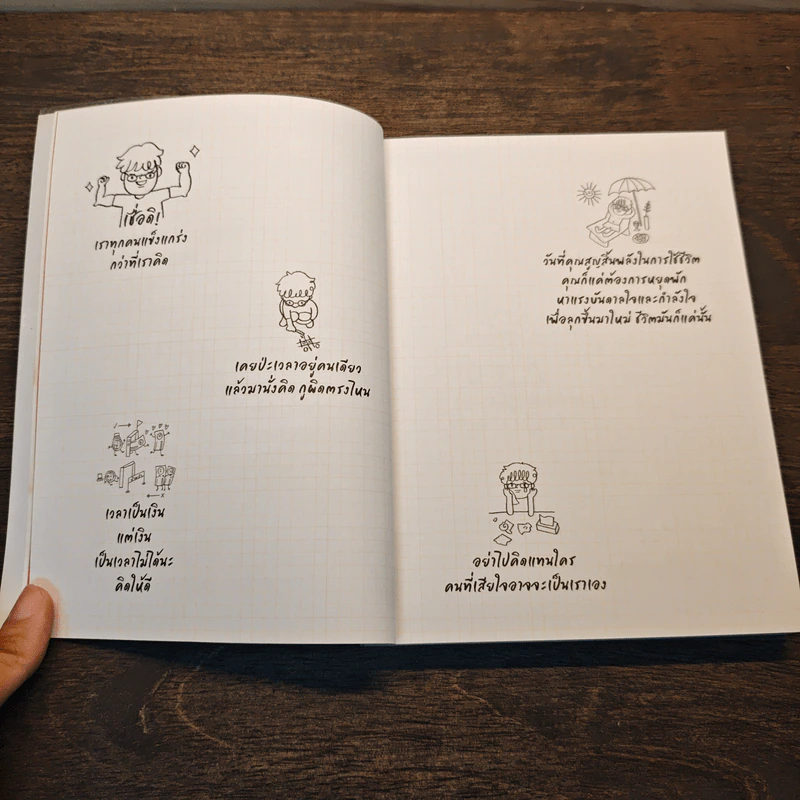 เชื่อดิ!
เราทุกคนแข็งแกร่ง
กว่าที่เราคิด
เคยป่ะเวลาอยู่คนเดียว
แล้วมานั่งคิด กูผิดตรงไหน
เวลาเป็นเงิน
แต่เงิน
เป็นเวลาไม่ได้นะ
คิดให้ดี
วันที่คุณสูญสิ้นพลังในการใช้ชีวิต
คุณก็แค่ต้องการหยุดพัก
หาแรงบันดาลใจและกำลังใจ
เพื่อลุกขึ้นมาใหม่ ชีวิตมันก็แค่นั้น
อย่าไปคิดแทนใคร
คนที่เสียใจอาจจะเป็นเราเอง